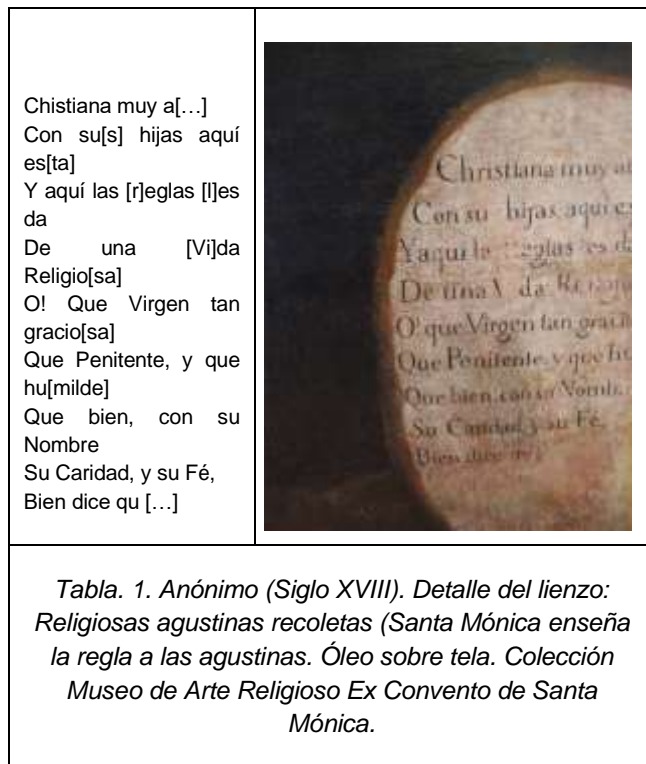 Chistiana muy a[…]
Con su[s] hijas aquí
es[ta]
Y aquí las [r]eglas [l]es
da
De una [Vi]da
Religio[sa]
O! Que Virgen tan
gracio[sa]
Que Penitente, y que
hu[milde]
Que bien, con su
Nombre
Su Caridad, y su Fé,
Bien dice qu […]
Christiana muy a
Con su hijas aqui es
Y aqui la eglas es da
De una V da Religio
O! que Virgen tan graci
Que Penitente, y que hu
Que bien, con su Nomb
Su Caridad, y su Fé,
Bien dice
Tabla. 1. Anónimo (Siglo XVIII). Detalle del lienzo:
Religiosas agustinas recoletas (Santa Mónica enseña
la regla a las agustinas. Óleo sobre tela. Colección
Museo de Arte Religioso Ex Convento de Santa
Mónica.